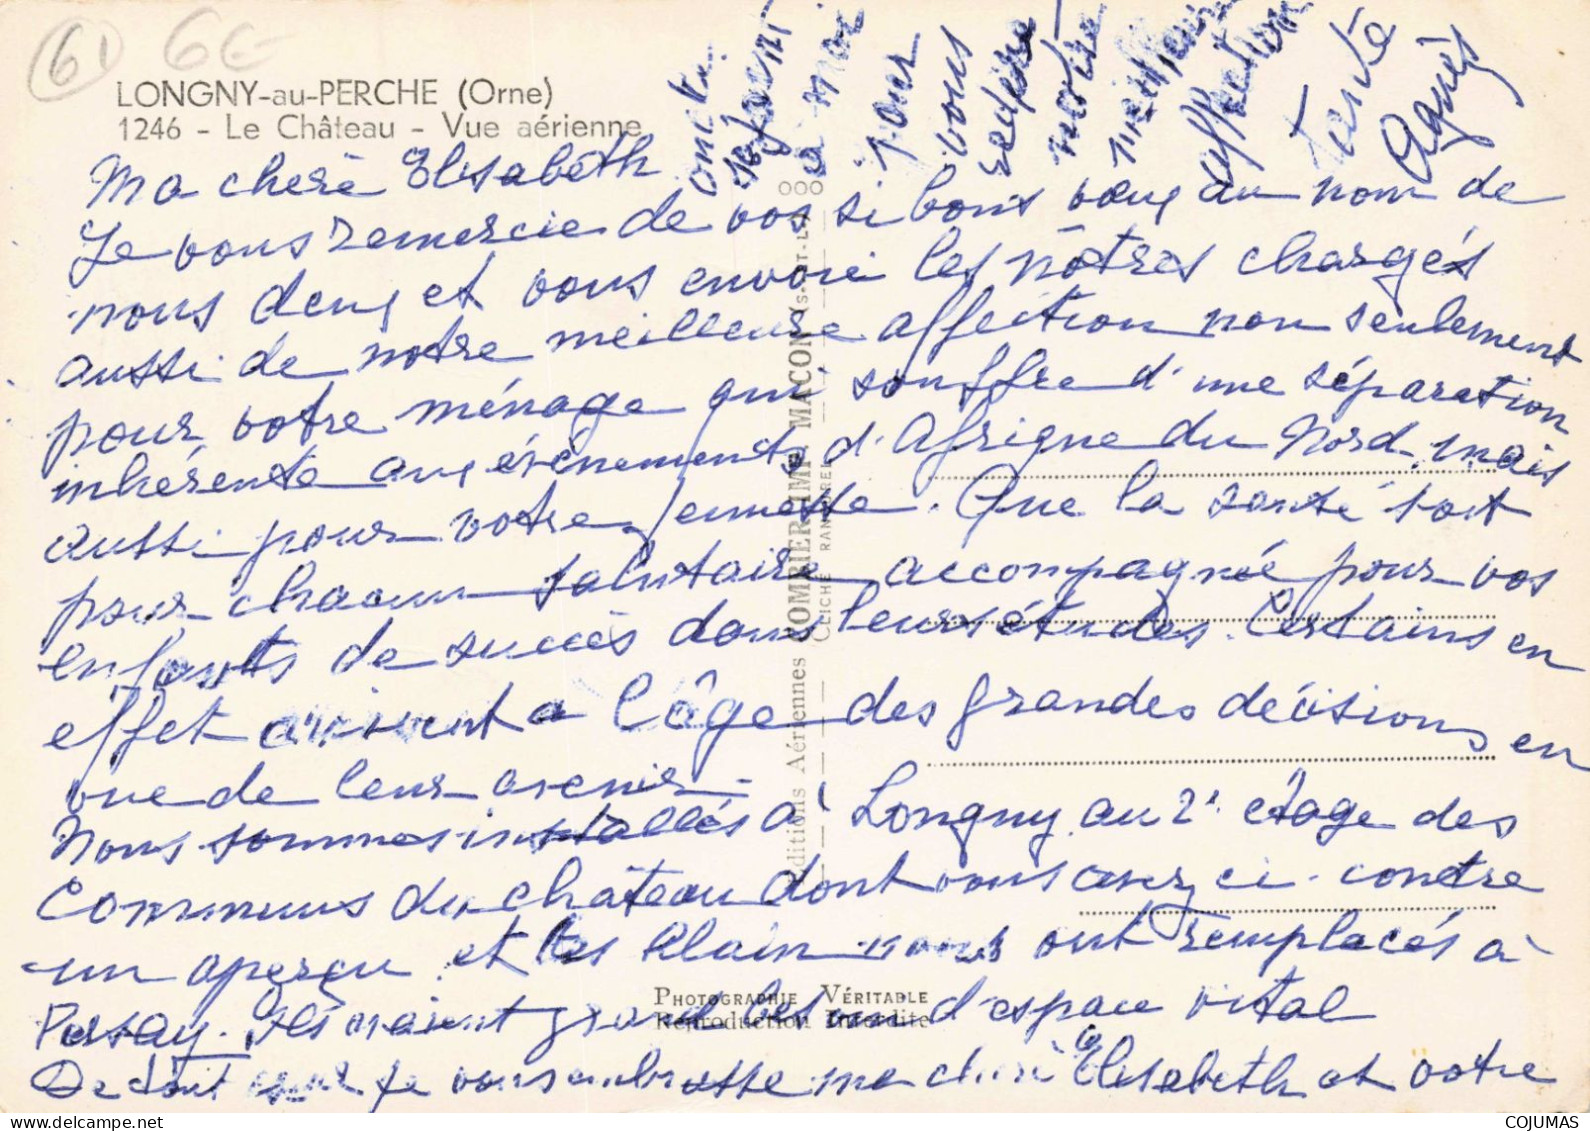 61 6€
LONGNY-au-PERCHE (Orne)
1246 - Le Château - Vue aérienne
Ma chère Elisabeth
Je vous remercie de vos si bons vœux au nom de
nous deux et vous envoie les nôtres chargés
aussi de notre meilleure affection non seulement
pour votre ménage qui souffre d'une séparation
inhérente aux évènements d'Afrique du Nord mais
aussi pour votre jeunesse. Que la santé soit
pour chacun salutaire accompagnée pour vos
enfants de succès dans leurs études. Certains en
effet arrivent a l'âge des grandes décisions en
vue de leur avenir -
Nous sommes installés à Longny au 2e étage des
Communs du château dont vous avez ci-contre
un aperçu et les Alain nous ont remplacés à
Persay. Ils avaient grand besoin d'espace vital
De tout cœur je vous embrasse ma chère Elisabeth et votre
oncle
se joint
à moi
pour
vous
redire
notre
meilleure
affection
Tante
Agnès
Editions Aériennes COMBIER IMP. MACON (S.-ET-L.)
CLICHÉ RANCUREL
PHOTOGRAPHIE VÉRITABLE
Reproduction Interdite
COJUMAS